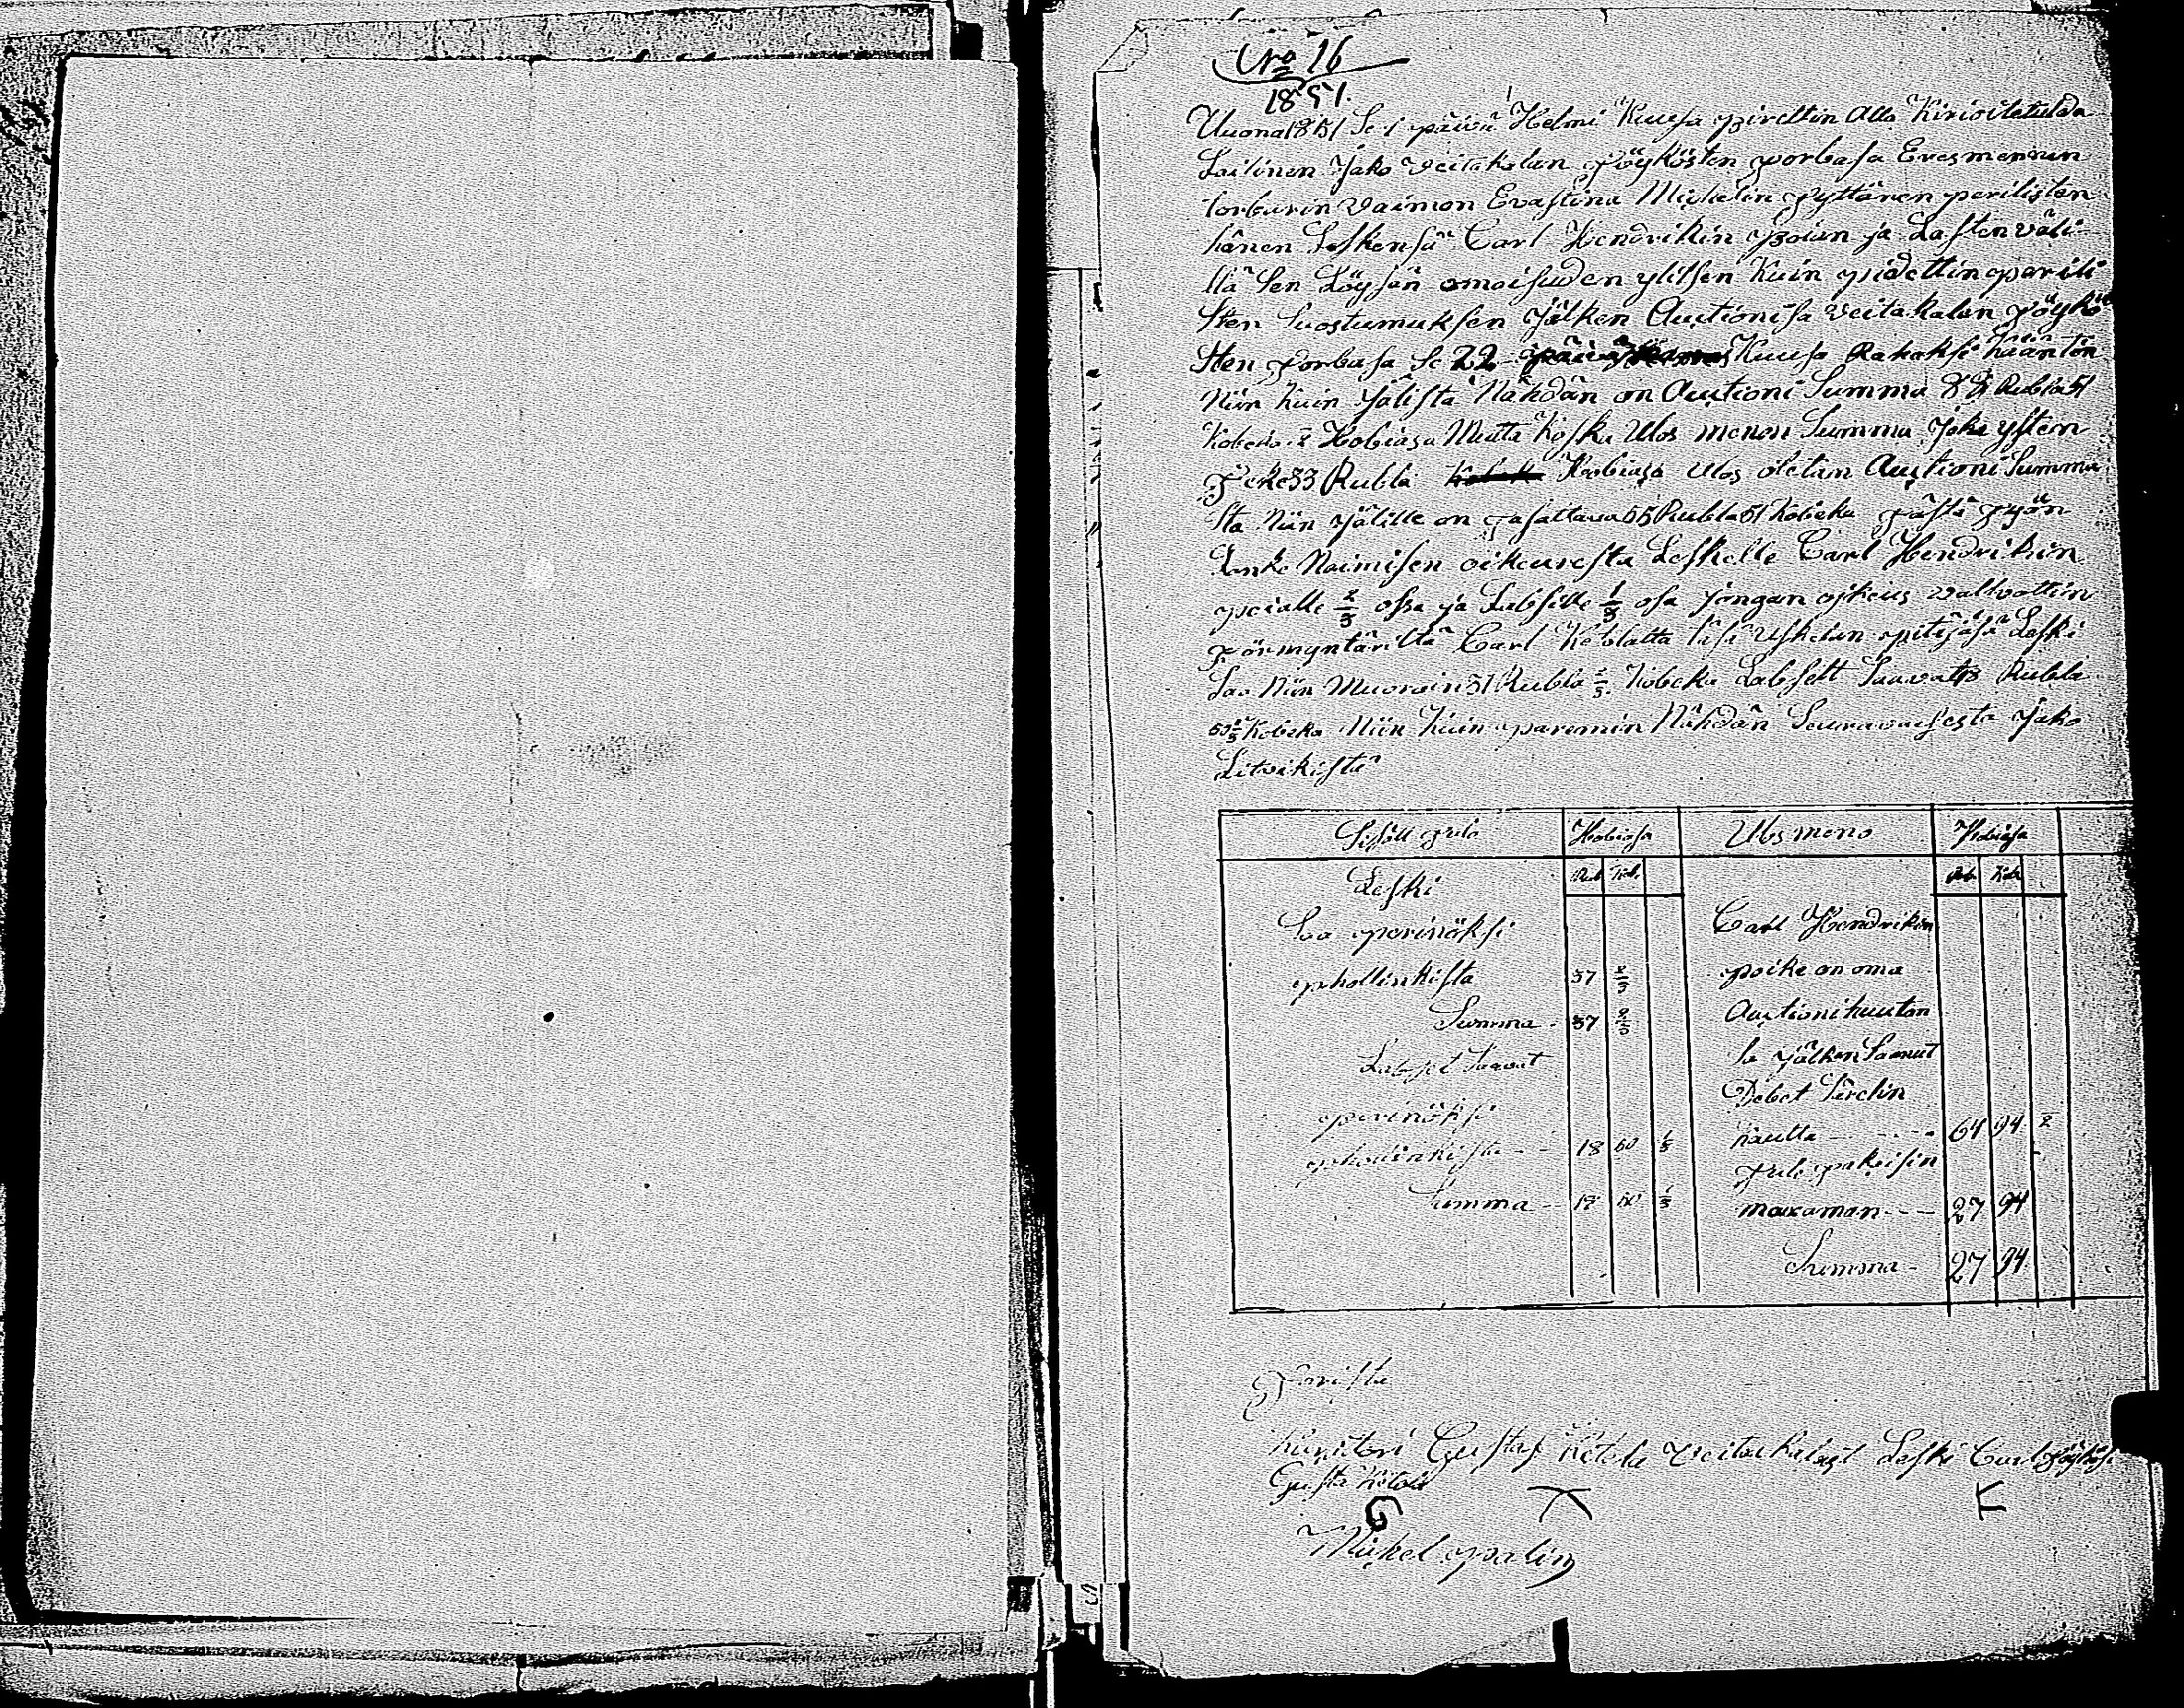 Nro 16
1851.
Vuona 1851 Se 1 päivä Helmi Kuusa pirettin Alla Kirioitetulda
Lailinen Jako Veitakalan Töykösten torbasa Evesmennen
torbarin Vaimon Evastina Michelin Tyttären perilisten
hänen Leskensä Carl Hendrikin Poian ja Lasten väli
llä Sen Löysän omaisuden ylitsen Kuin pidettin perili
sten Suostumuksen Jälken Auctionisa Veitakalan Töykö
sten torbasa Se 22 Kuusa Rahaksi Kääntön
Niin Kuin Jälistä Nähdän on Auctioni Summa 88 Rubla 51
Kobeka Hobiasa Mutta Koska Ulos menon Summa Joka ystern
Teke 33 Rubla Hobiasa Ulos otetan Auctioni Summa
sta Niin Jälille on Jasattava 55 Rubla 51 Kobeka Tästä Tyän
Lanke Naimisen oikeuresta Leskelle Carl Hendrikin
poialle 2/3 osa ja Labsille 1/3 osa Jongan oikeus valvottin
Förmyntäriltä Carl Ketolalta Uskelan pitäjäsä Leski
Saa Niin Muoroin 37 Rubla 2/3 Kobeka Labsett Saavat 18 Rubla
50 1/3 Kobeka Niin Kuin paremin Nähdän Seuravaisesta Jako
Litvikistä
Sisäll Tulo Hobiasa Ulos meno Hobiasa
Rub Kob Rub Kob
Leski
Saa perinöksi Carl Hendrikin
phollinkista 37 2/3 poika on oma
Summa 37 2/3 Auctioni huuton
Labset Saavat Sa Jälken Saanut
Debet
perinöksi kautta 64 94 2
phollinkista 18 50 1/3 Tule takaisin
Summa 18 50 1/3 maxaman 27 94
Summa 27 94
Torista
Gustaf Ketola Veitakalast Leski Carl Töykösi
Gusta Ketola
Mickel palin